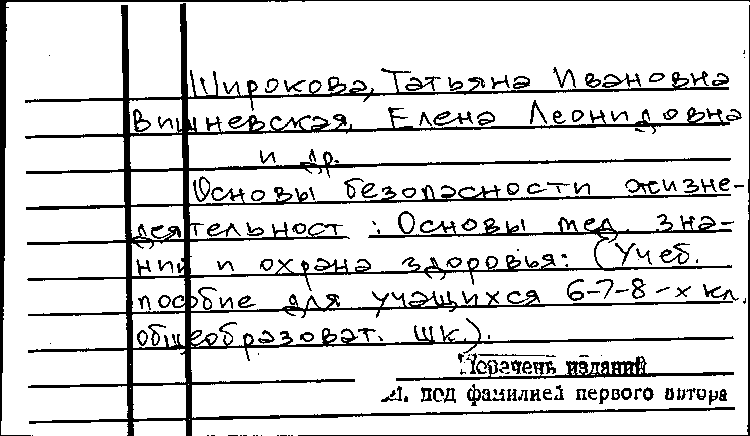 Широкова, Татьяна Ивановна
Вишневская, Елена Леонидовна
и др.
Основы безопасности жизне-
деятельност : Основы мед. зна-
ний и охрана здоровья: (Учеб.
пособие для учащихся 6-7-8-х кл.
общеобразоват. шк.).
Перечень изданий
под фамилией первого автора